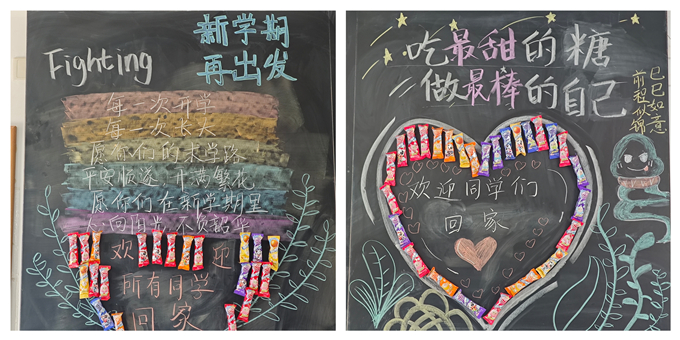 Fighting
新学期
再出发
每一次开学
每一次长大
愿你们的求学路
平安顺遂 开满繁花
愿你们在新学期里
心向阳光 不负韶华
欢迎
所有同学
回家
吃最甜的糖
做最棒的自己
巳巳如意
前程似锦
欢迎同学们
回家